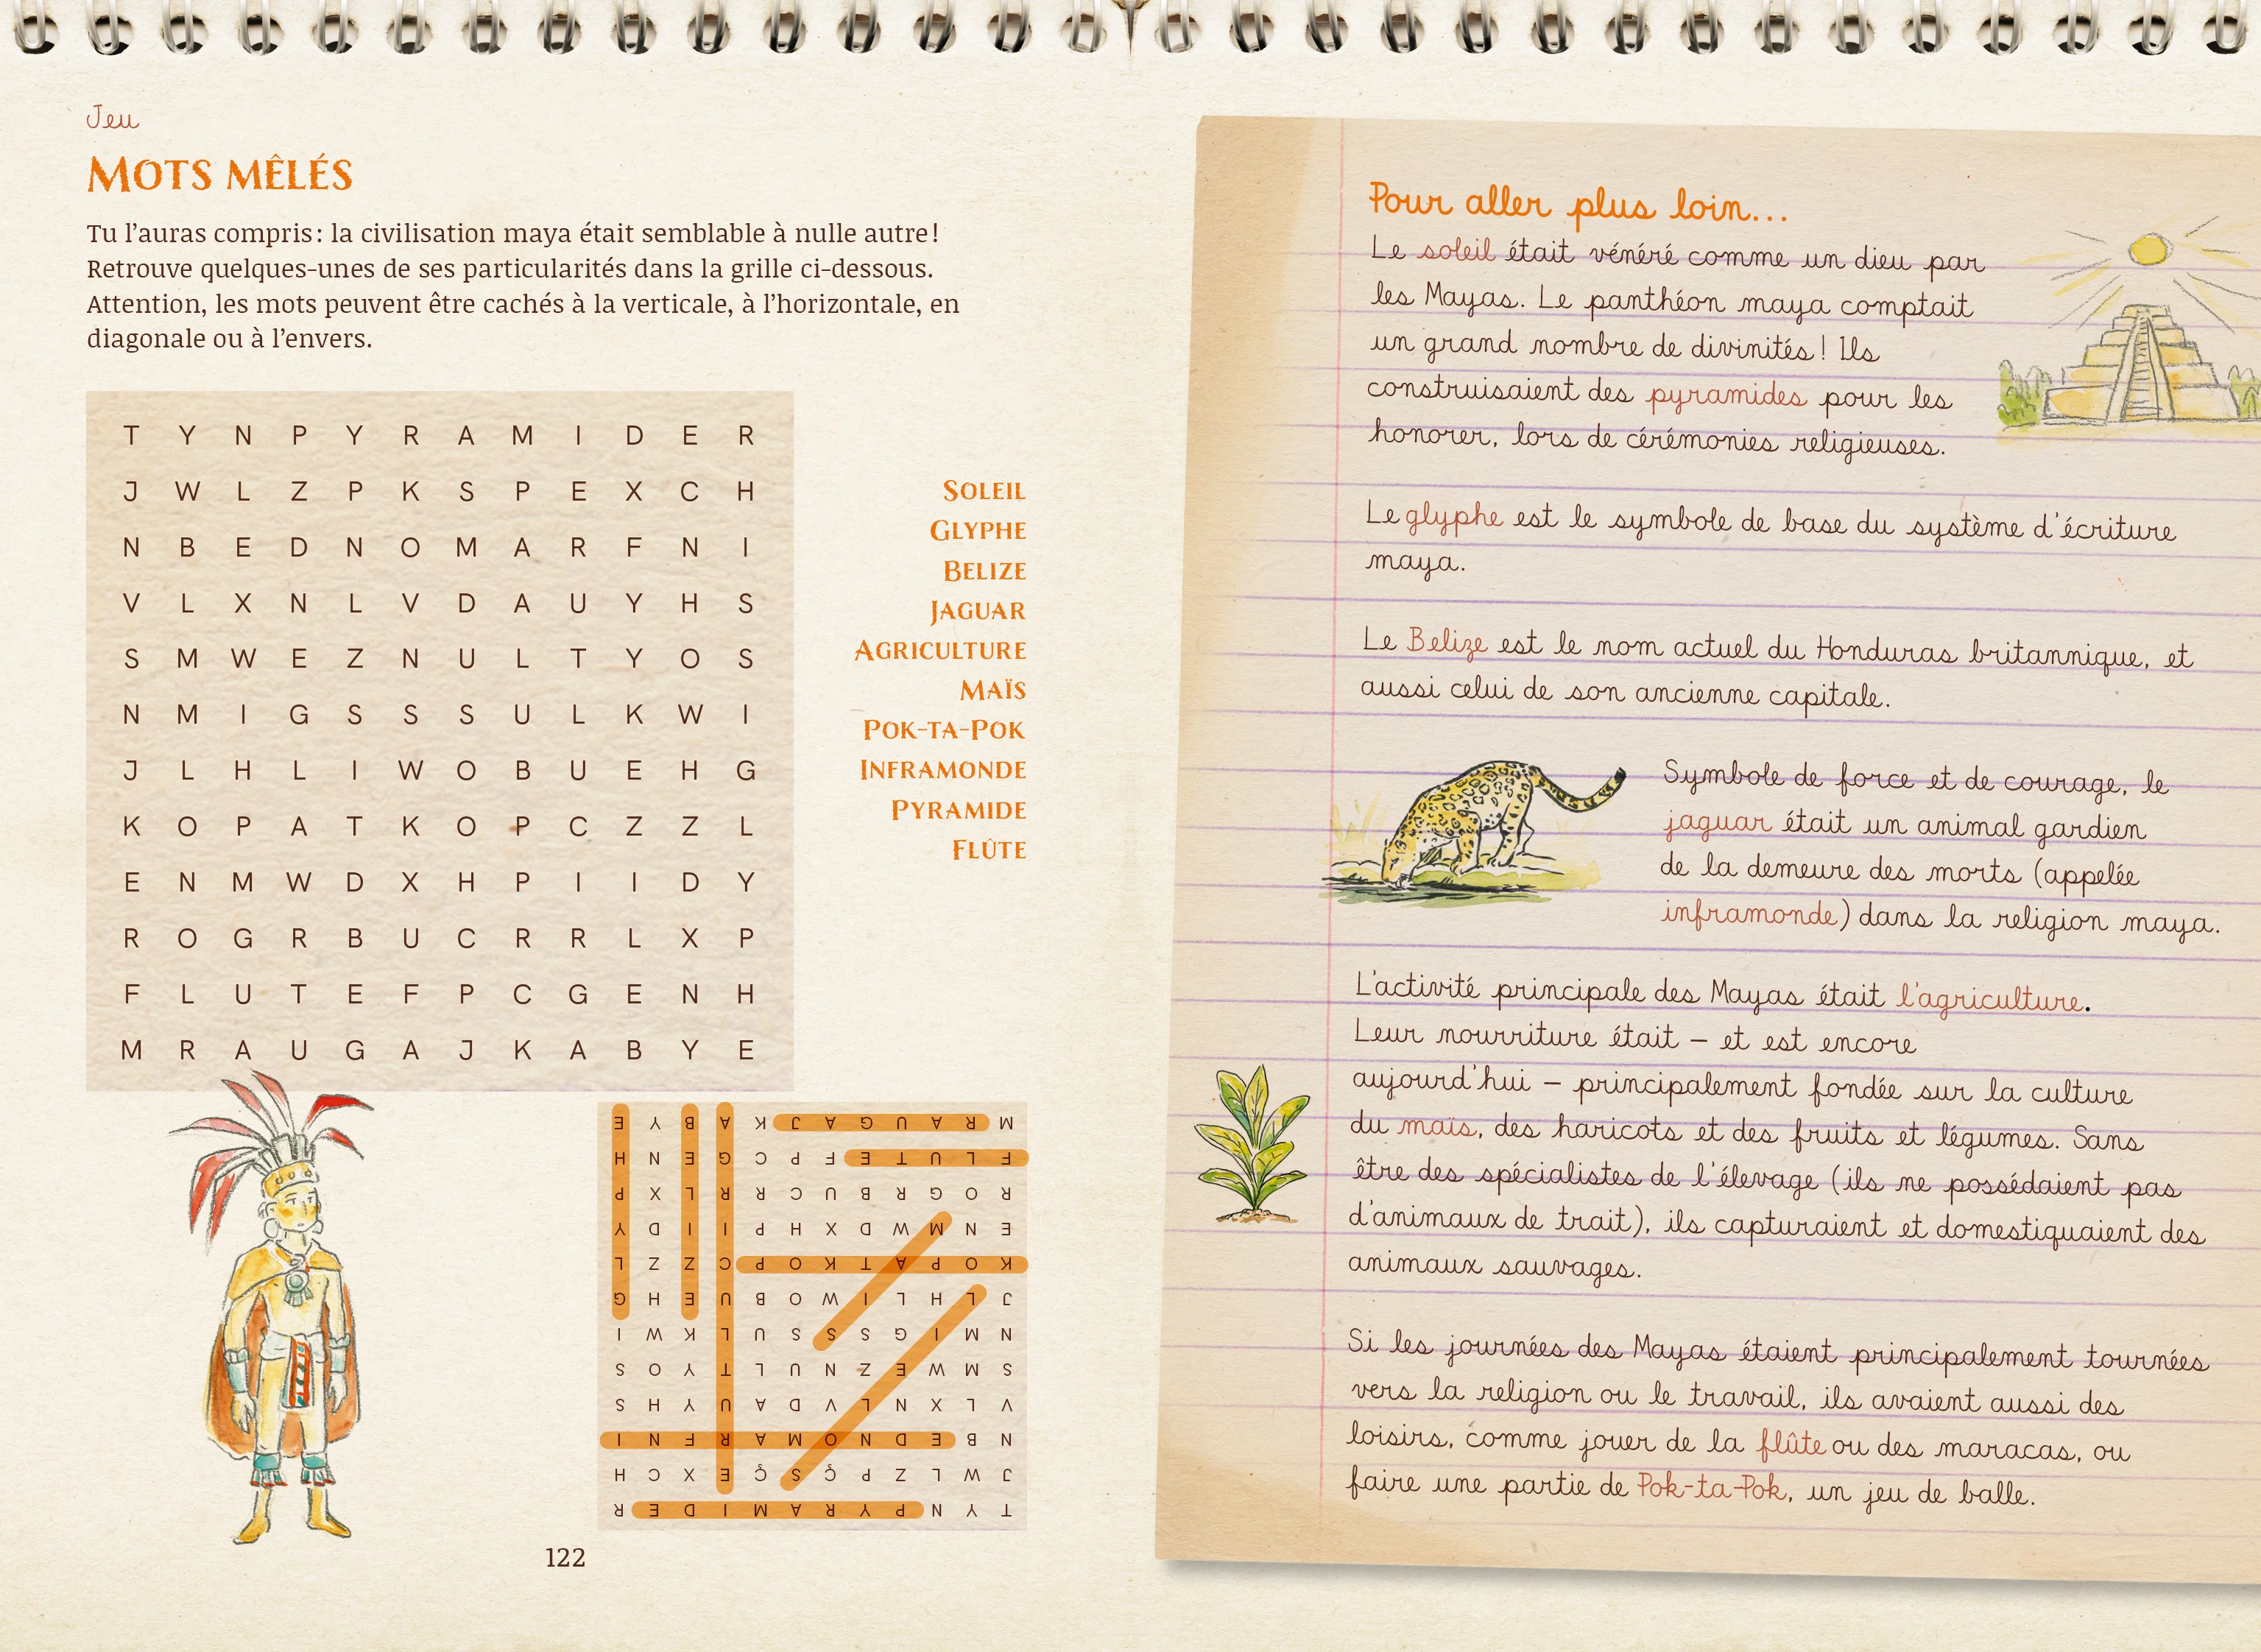 Jeu
MOTS MÊLÉS
Tu l’auras compris : la civilisation maya était semblable à nulle autre !
Retrouve quelques-unes de ses particularités dans la grille ci-dessous.
Attention, les mots peuvent être cachés à la verticale, à l’horizontale, en
diagonale ou à l’envers.
T Y N P Y R A M I D E R
J W L Z P K S P E X C H
N B E D N O M A R F N I
V L X N L V D A U Y H S
S M W E Z N U L T Y O S
N M I G S S S U L K W I
J L H L I W O B U E H G
K O P A T K O P C Z Z L
E N M W D X H P I I D Y
R O G R B U C R R L X P
F L U T E F P C G E N H
M R A U G A J K A B Y E
SOLEIL
GLYPHE
BELIZE
JAGUAR
AGRICULTURE
MAÏS
POK-TA-POK
INFRAMONDE
PYRAMIDE
FLÛTE
T Y N P Y R A M I D E R
J W L Z P Ç S Ç E X C H
N B E D N O M A R F N I
V L X N L V D A U Y H S
S M W E Z N U L T Y O S
N M I G S S S U L K W I
J L H L I W O B U E H G
K O P A T K O P C Z Z L
E N M W D X H P I I D Y
R O G R B U C R R L X P
F L U T E F P C G E N H
M R A U G A J K A B Y E
122
Pour aller plus loin...
Le soleil était vénéré comme un dieu par
les Mayas. Le panthéon maya comptait
un grand nombre de divinités ! Ils
construisaient des pyramides pour les
honorer, lors de cérémonies religieuses.
Le glyphe est le symbole de base du système d’écriture
maya.
Le Belize est le nom actuel du Honduras britannique, et
aussi celui de son ancienne capitale.
Symbole de force et de courage, le
jaguar était un animal gardien
de la demeure des morts (appelée
inframonde) dans la religion maya.
L’activité principale des Mayas était l’agriculture.
Leur nourriture était – et est encore
aujourd’hui – principalement fondée sur la culture
du maïs, des haricots et des fruits et légumes. Sans
être des spécialistes de l’élevage (ils ne possédaient pas
d’animaux de trait), ils capturaient et domestiquaient des
animaux sauvages.
Si les journées des Mayas étaient principalement tournées
vers la religion ou le travail, ils avaient aussi des
loisirs, comme jouer de la flûte ou des maracas, ou
faire une partie de Pok-ta-Pok, un jeu de balle.